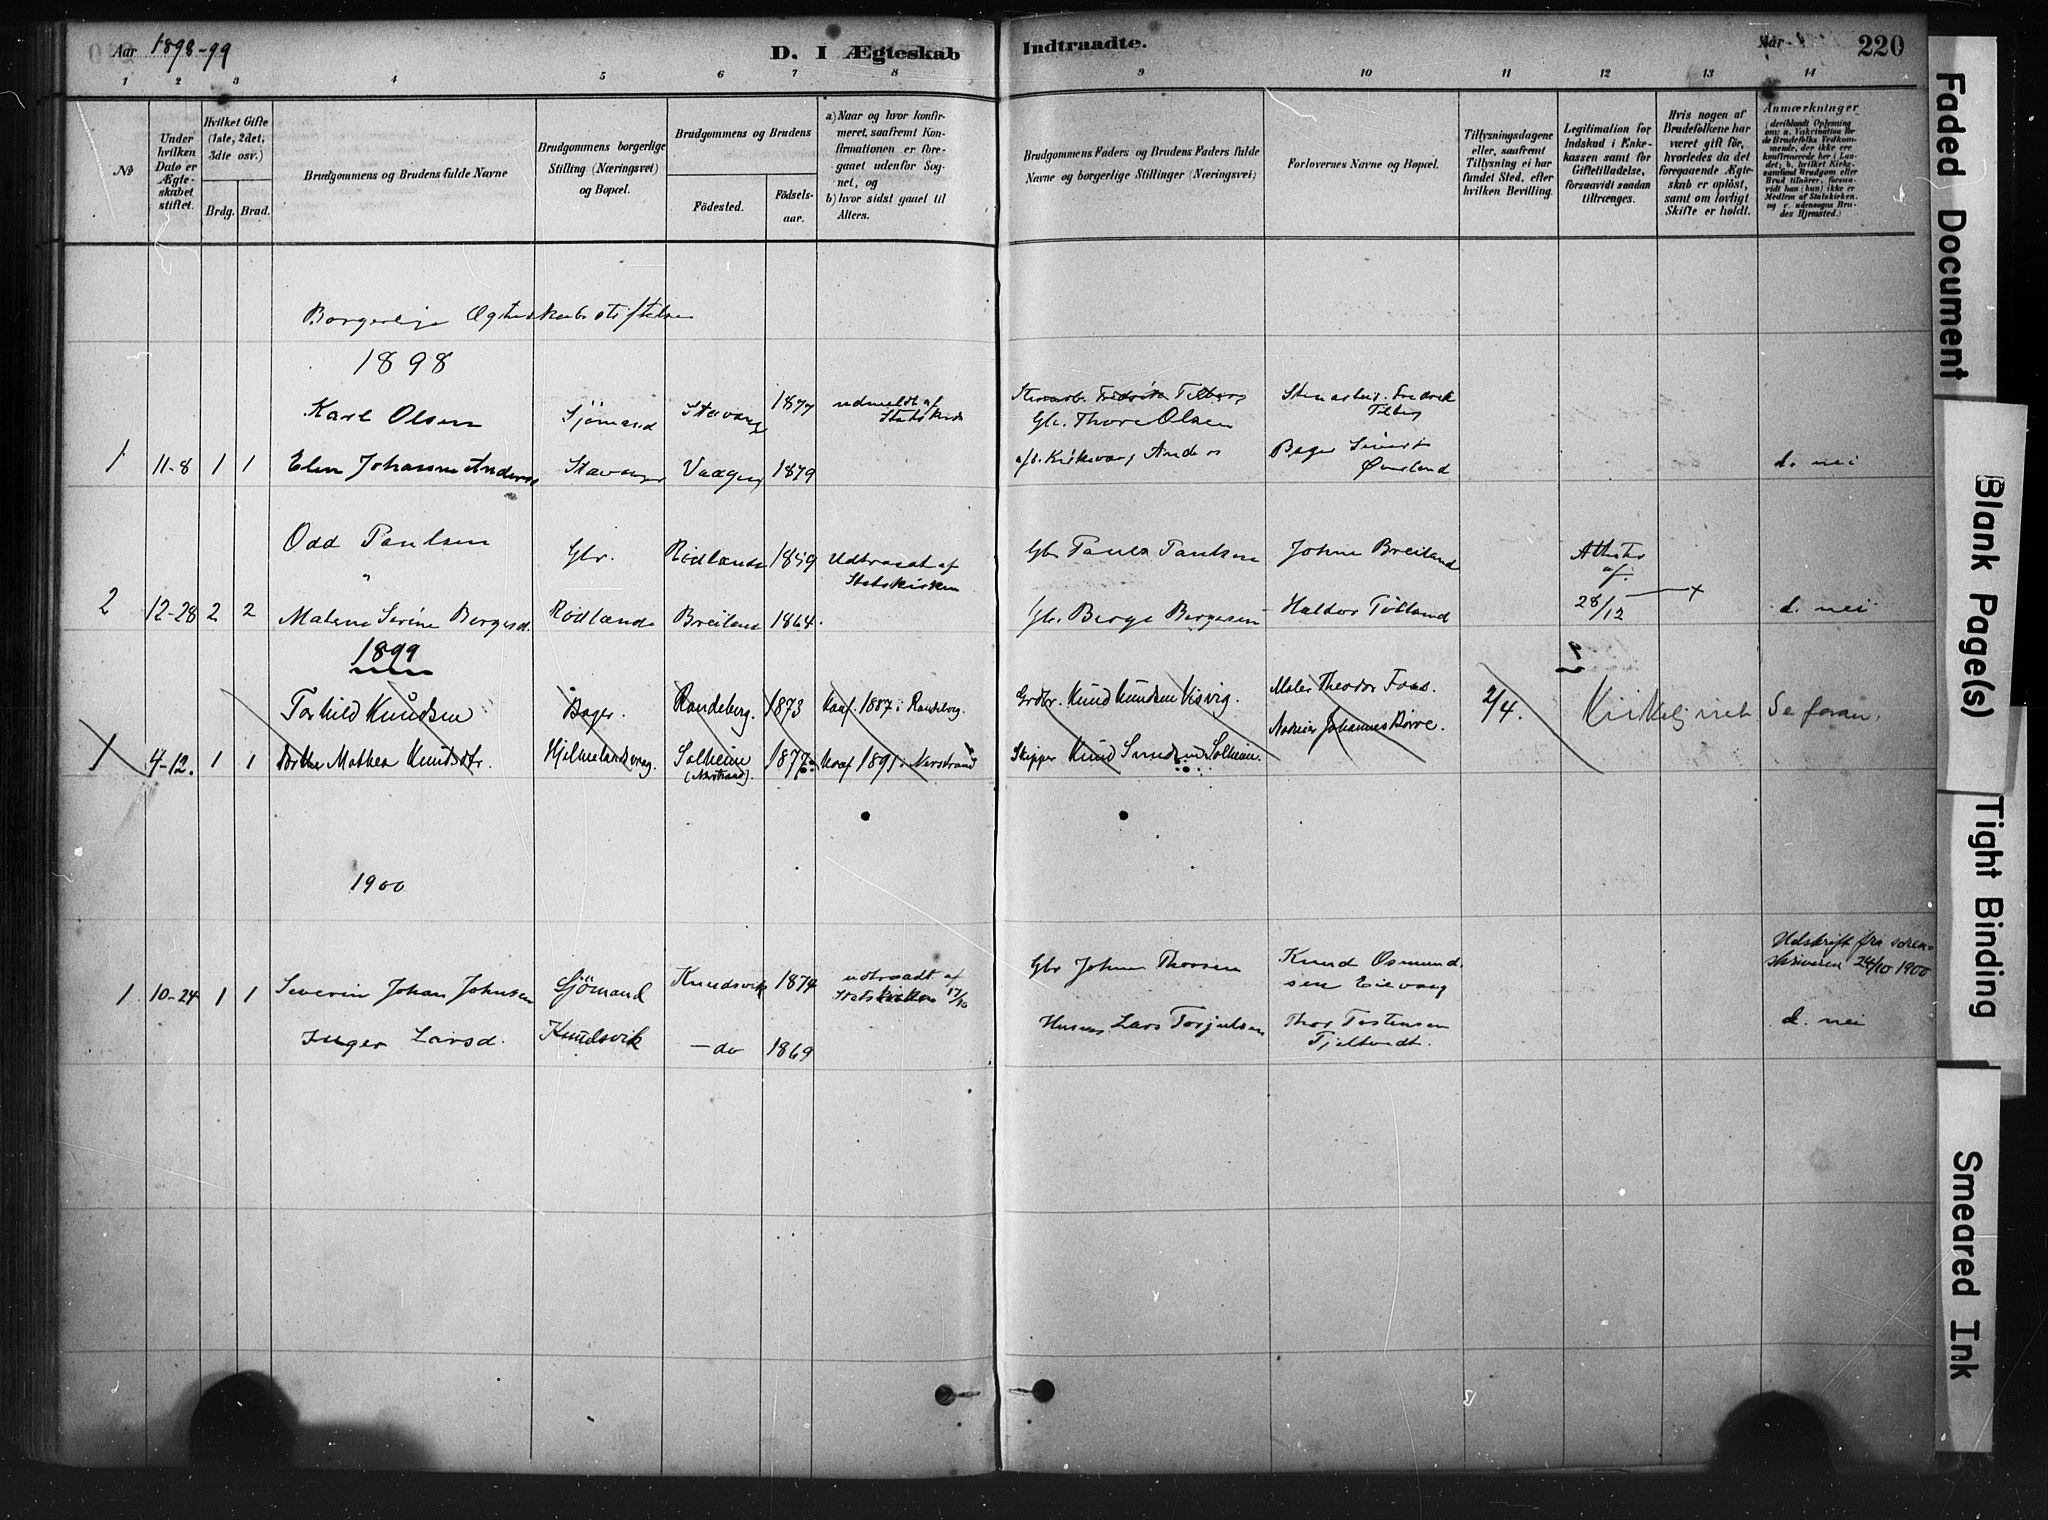 Aar 1898-99
D. I Ægteskab
Indtraadte.
Aar
220
1 2 3 4 5 6 7 8 9 10 11 12 13 14
No
Under hvilken Dato er Ægteskabet stiftet.
Hvilket Gifte (1ste, 2det, 3dte osv.)
Brdg. Brud.
Brudgommens og Brudens fulde Navne
Brudgommens borgerlige Stilling (Næringsvei) og Bopæl.
Brudgommens og Brudens
Födested.
Födselsaar.
a) Naar og hvor konfirmeret, saafremt Konfirmationen er foregaaet udenfor Sognet, og
b) hvor sidst gaaet til Alters.
Brudgommens Faders og Brudens Faders fulde Navne og borgerlige Stillinger (Næringsvei)
Forlovernes Navne og Bopæl.
Tillysningsdagene eller, saafremt Tillysning ei har fundet Sted, efter hvilken Bevilling.
Legitimation for Indskud i Enkekassen samt for Giftetilladelse, forsaavidt saadan tiltrænges.
Hvis nogen af Brudefolkene har været gift før, hvorledes da det foregaaende Ægteskab er oplöst, samt om lovligt Skifte er holdt.
Anmærkninger
(deriblandt Oplysning om: a. Vakcination for de Brudefolks Vedkommende, der ikke ere konfirmerede her i Landet; b. hvilket Kirkesamfund Brudgom eller Brud tilhörer, forsaavidt han (hun) ikke er Medlem af Statskirken, og c. udensogns Brudes Hjemsted.)
Borgerlige Ægteskabsstiftelser
1898
Karl Olsen Sjömand Stavang 1877 udmeldt af Statskirke
Fredrik Gl. Thore Olsen
Fredrik
1 11-8 1 1 Elen Johanne Anders Stavanger Vaagen 1879
Anders
Bager Sivert Øverland
d. nei
Odd Paulsen Gbr. Rödland 1859 Udtraadt af Statskirken
Gbr Paulsen
John Breiland
Attester af. 28/12 x
2 12-28 2 2 Malene Serine Borgesd. Rödland Breiland 1864.
Gbr. Berge Bergesen
Haldor Tötland
d. nei
1899
Torkild Knudsen Bager. Randeberg. 1873 Konf. 1887 i Randebg.
Grdbr. Knud Knudsen Visvig.
Maler Theodor Foss.
2/4.
Kirkelig viet
Se foran.
1 4-12. 1 1 Mathea Knudsdtr. Hjelmelandsvaag. Solheim (Nerstrand) 1877 Konf 1891 i Nerstrand
Skipper Knud Solheim.
Johannes
1900
Udskrift fra sorenskriveren 24/10 1900
1 10-24 1 1 Severin Johan Johnsen Sjömand Knudsvik 1874 udtraadt af Statskirken 17/10
Gbr John Thorsen
Knud Osmundsen Eievaag
Inger Larsd. Knudsvik - do 1869
Husm. Lars Torjulsen
Thor Tostensen Tjeltvedt.
d. nei
Faded Document
Blank Page(s)
Tight Binding
Smeared Ink